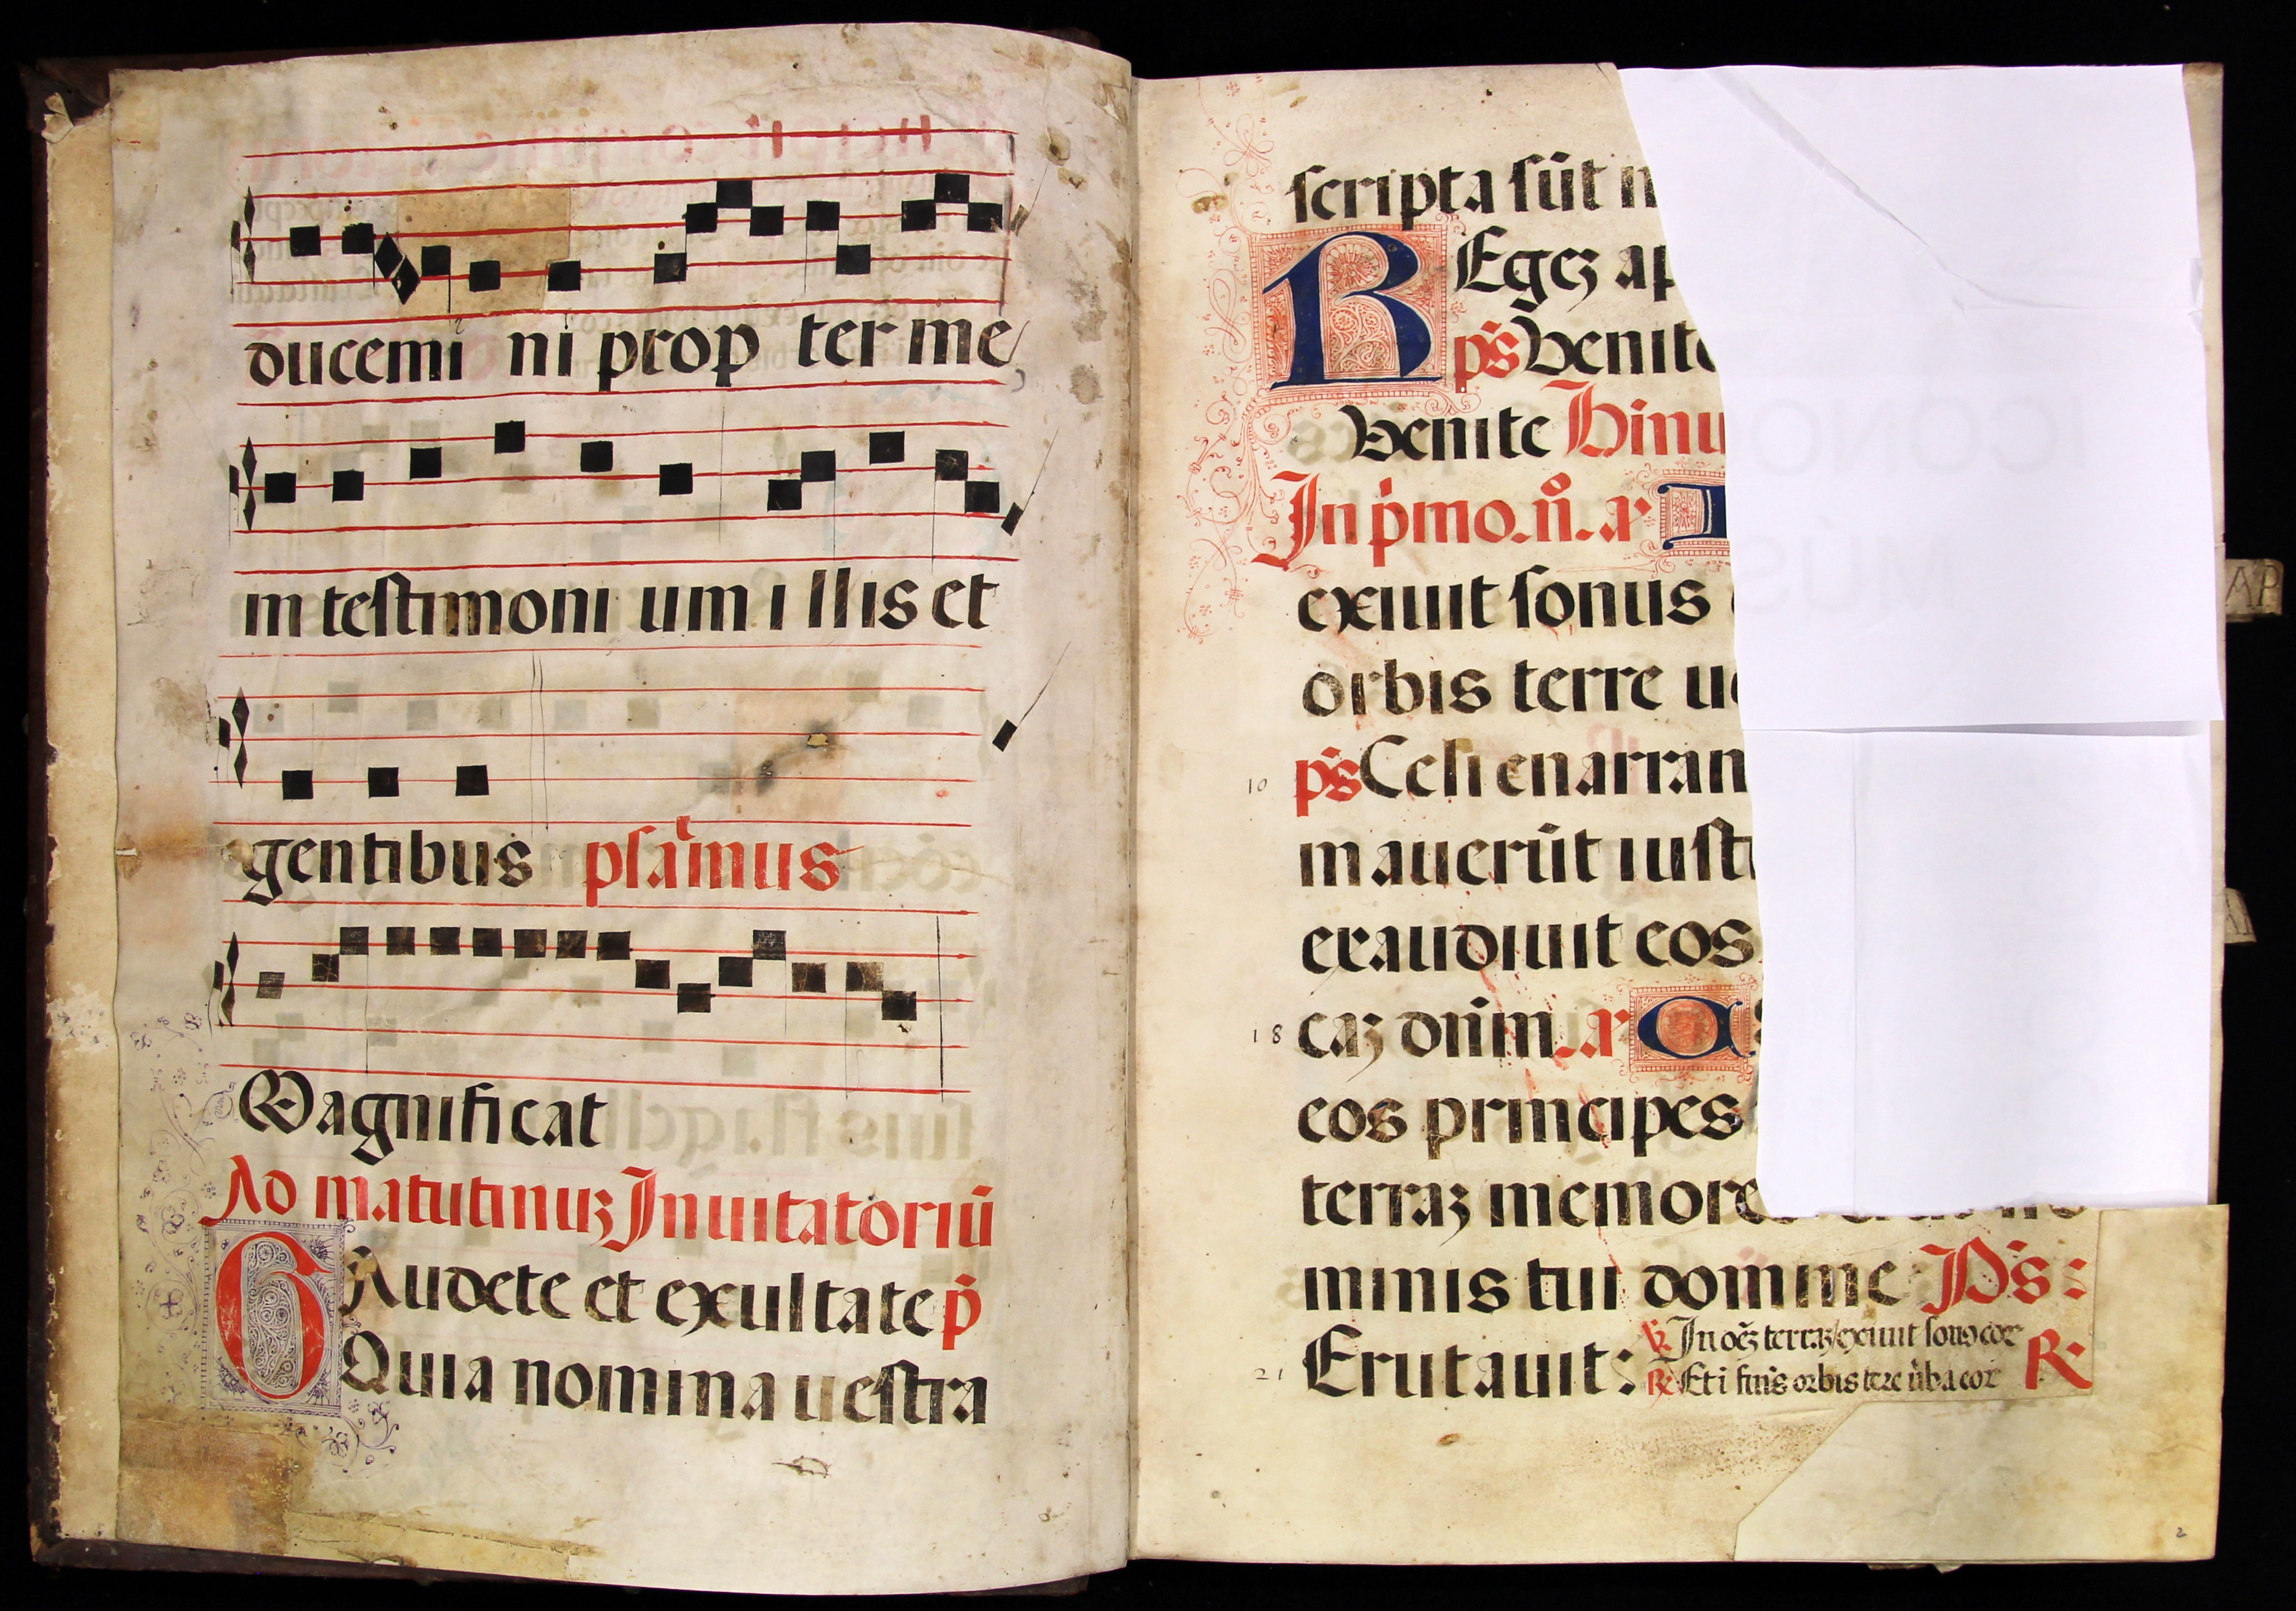 ducemi ni prop ter me
in testimoni um i llis et
gentibus psāmus
Magnificat
Ad matutinuʒ Inuitatoriū
GAudete et exultate p̄
Quia nomina uestra
scripta sūt n
REgeʒ ap
p̄s Venite
Venite Hinu
In p̄mo. n̄. ar
exiuit sonus
orbis terre ue
10 p̄s Celi enarran
mauerūt iusti
exaudiuit eos
18 caʒ dn̄m. ar
eos principes
terraʒ memores
minis tui domine Ps:
21 Erutauit:
℣. In oēʒ terraʒ exiuit sonꝰ eoꝝ
℟ Et i finis orbis tere ūba eoꝝ R
2
AP